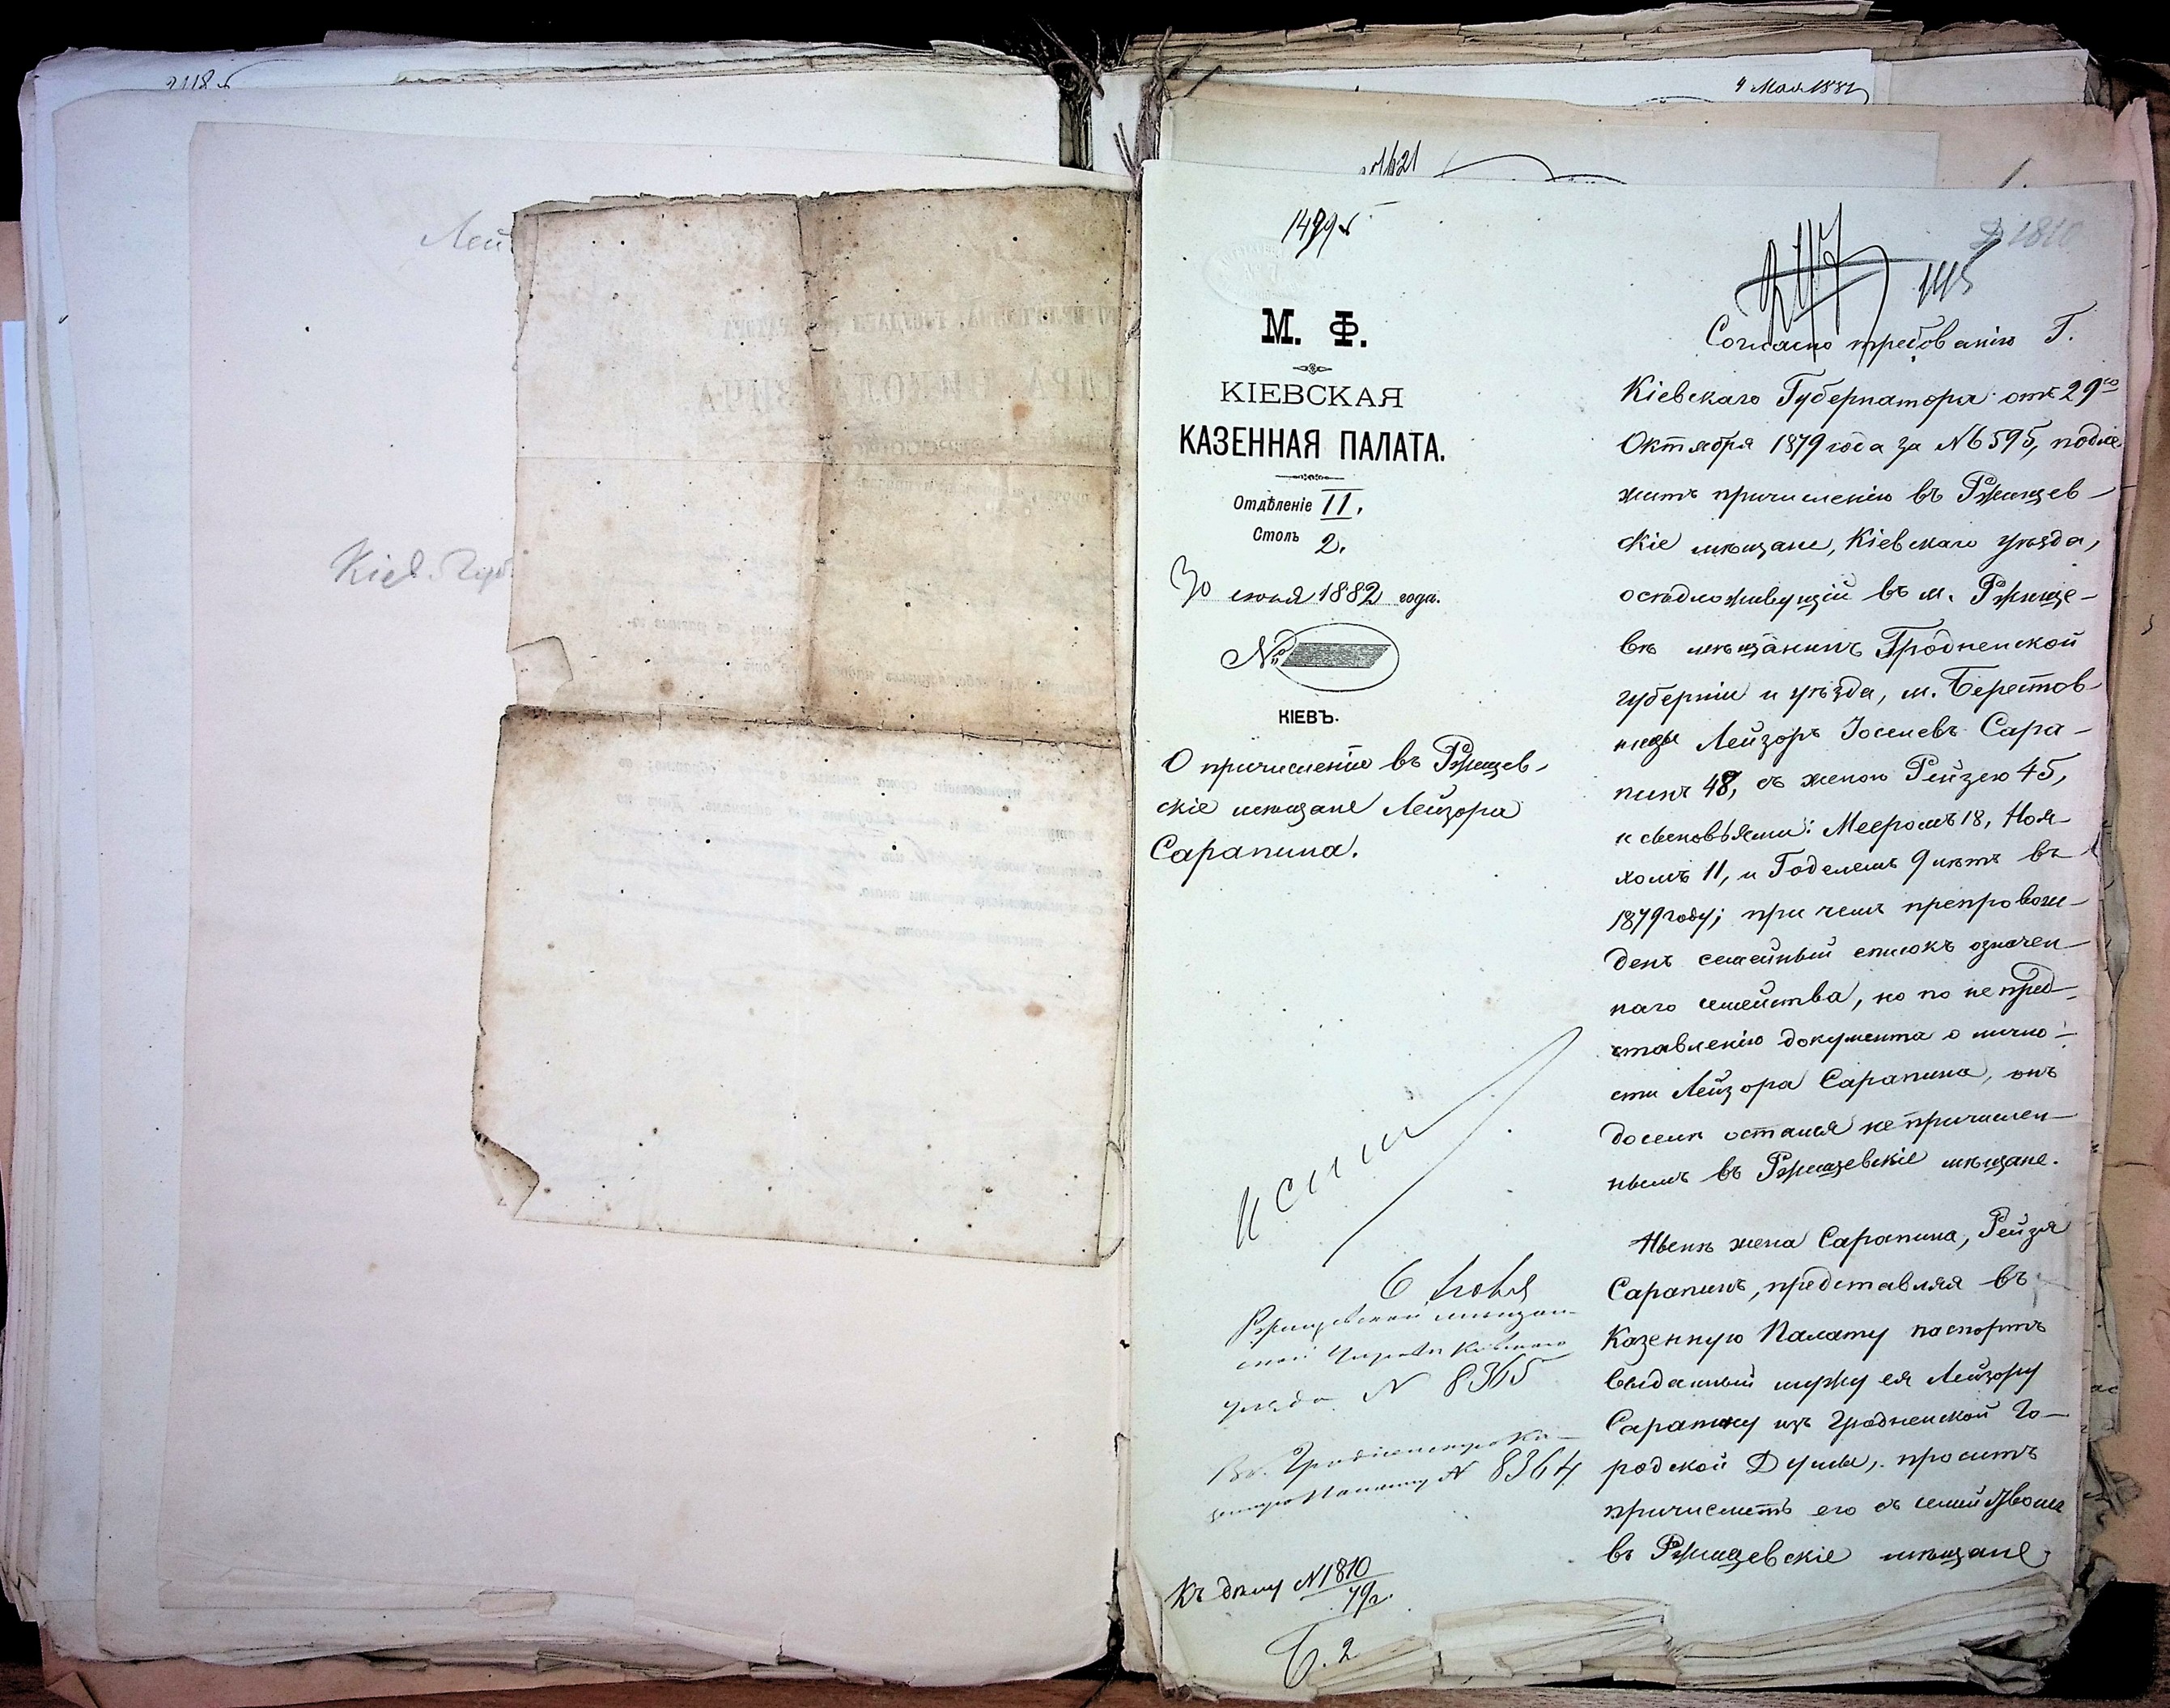 4 Мая 1882
Лей
Кіев. Губ.
1499
1810
М. Ф.
КІЕВСКАЯ
КАЗЕННАЯ ПАЛАТА.
Отдѣленіе II.
Столъ 2.
30 іюня 1882 года.
№
КІЕВЪ.
О причисленіи въ Ржищев-
скіе мѣщане Лейзора
Сарапина.
6 Іюля
Ржищевской мѣщан-
ской Управѣ Кіевскаго
уѣзда N 8365
N 8364
Къ дѣлу N 1810
79 г.
Б. 2
Согласно требованію Г.
Кіевскаго Губернатора отъ 29го
Октября 1879 года за N 6595, подле
житъ причисленію въ Ржищев-
скіе мѣщане, Кіевскаго уѣзда,
осѣдложивущій въ м. Ржище-
вѣ мѣщанинъ Гродненской
губерніи и уѣзда, м. Берестов-
ицы Лейзоръ Іоселевъ Сара-
пинъ 48, съ женою Рейзею 45,
и сыновьями: Мееромъ 18, Ноя-
хомъ 11, и Годелемъ 9 лѣтъ въ
1879 году; при чемъ препровож-
денъ семейный списокъ означен-
наго семейства, но по не пред-
ставленію документа о лично-
сти Лейзора Сарапина, онъ
доселѣ остался не причислен-
нымъ въ Ржищевскіе мѣщане.
Нынѣ жена Сарапина, Рейзя
Сарапинъ, представляя въ
Казенную Палату паспортъ
выданный мужу ея Лейзору
Сарапину изъ Гродненской Го-
родской Думы, проситъ
причислить его съ семействомъ
въ Ржищевскіе мѣщане,